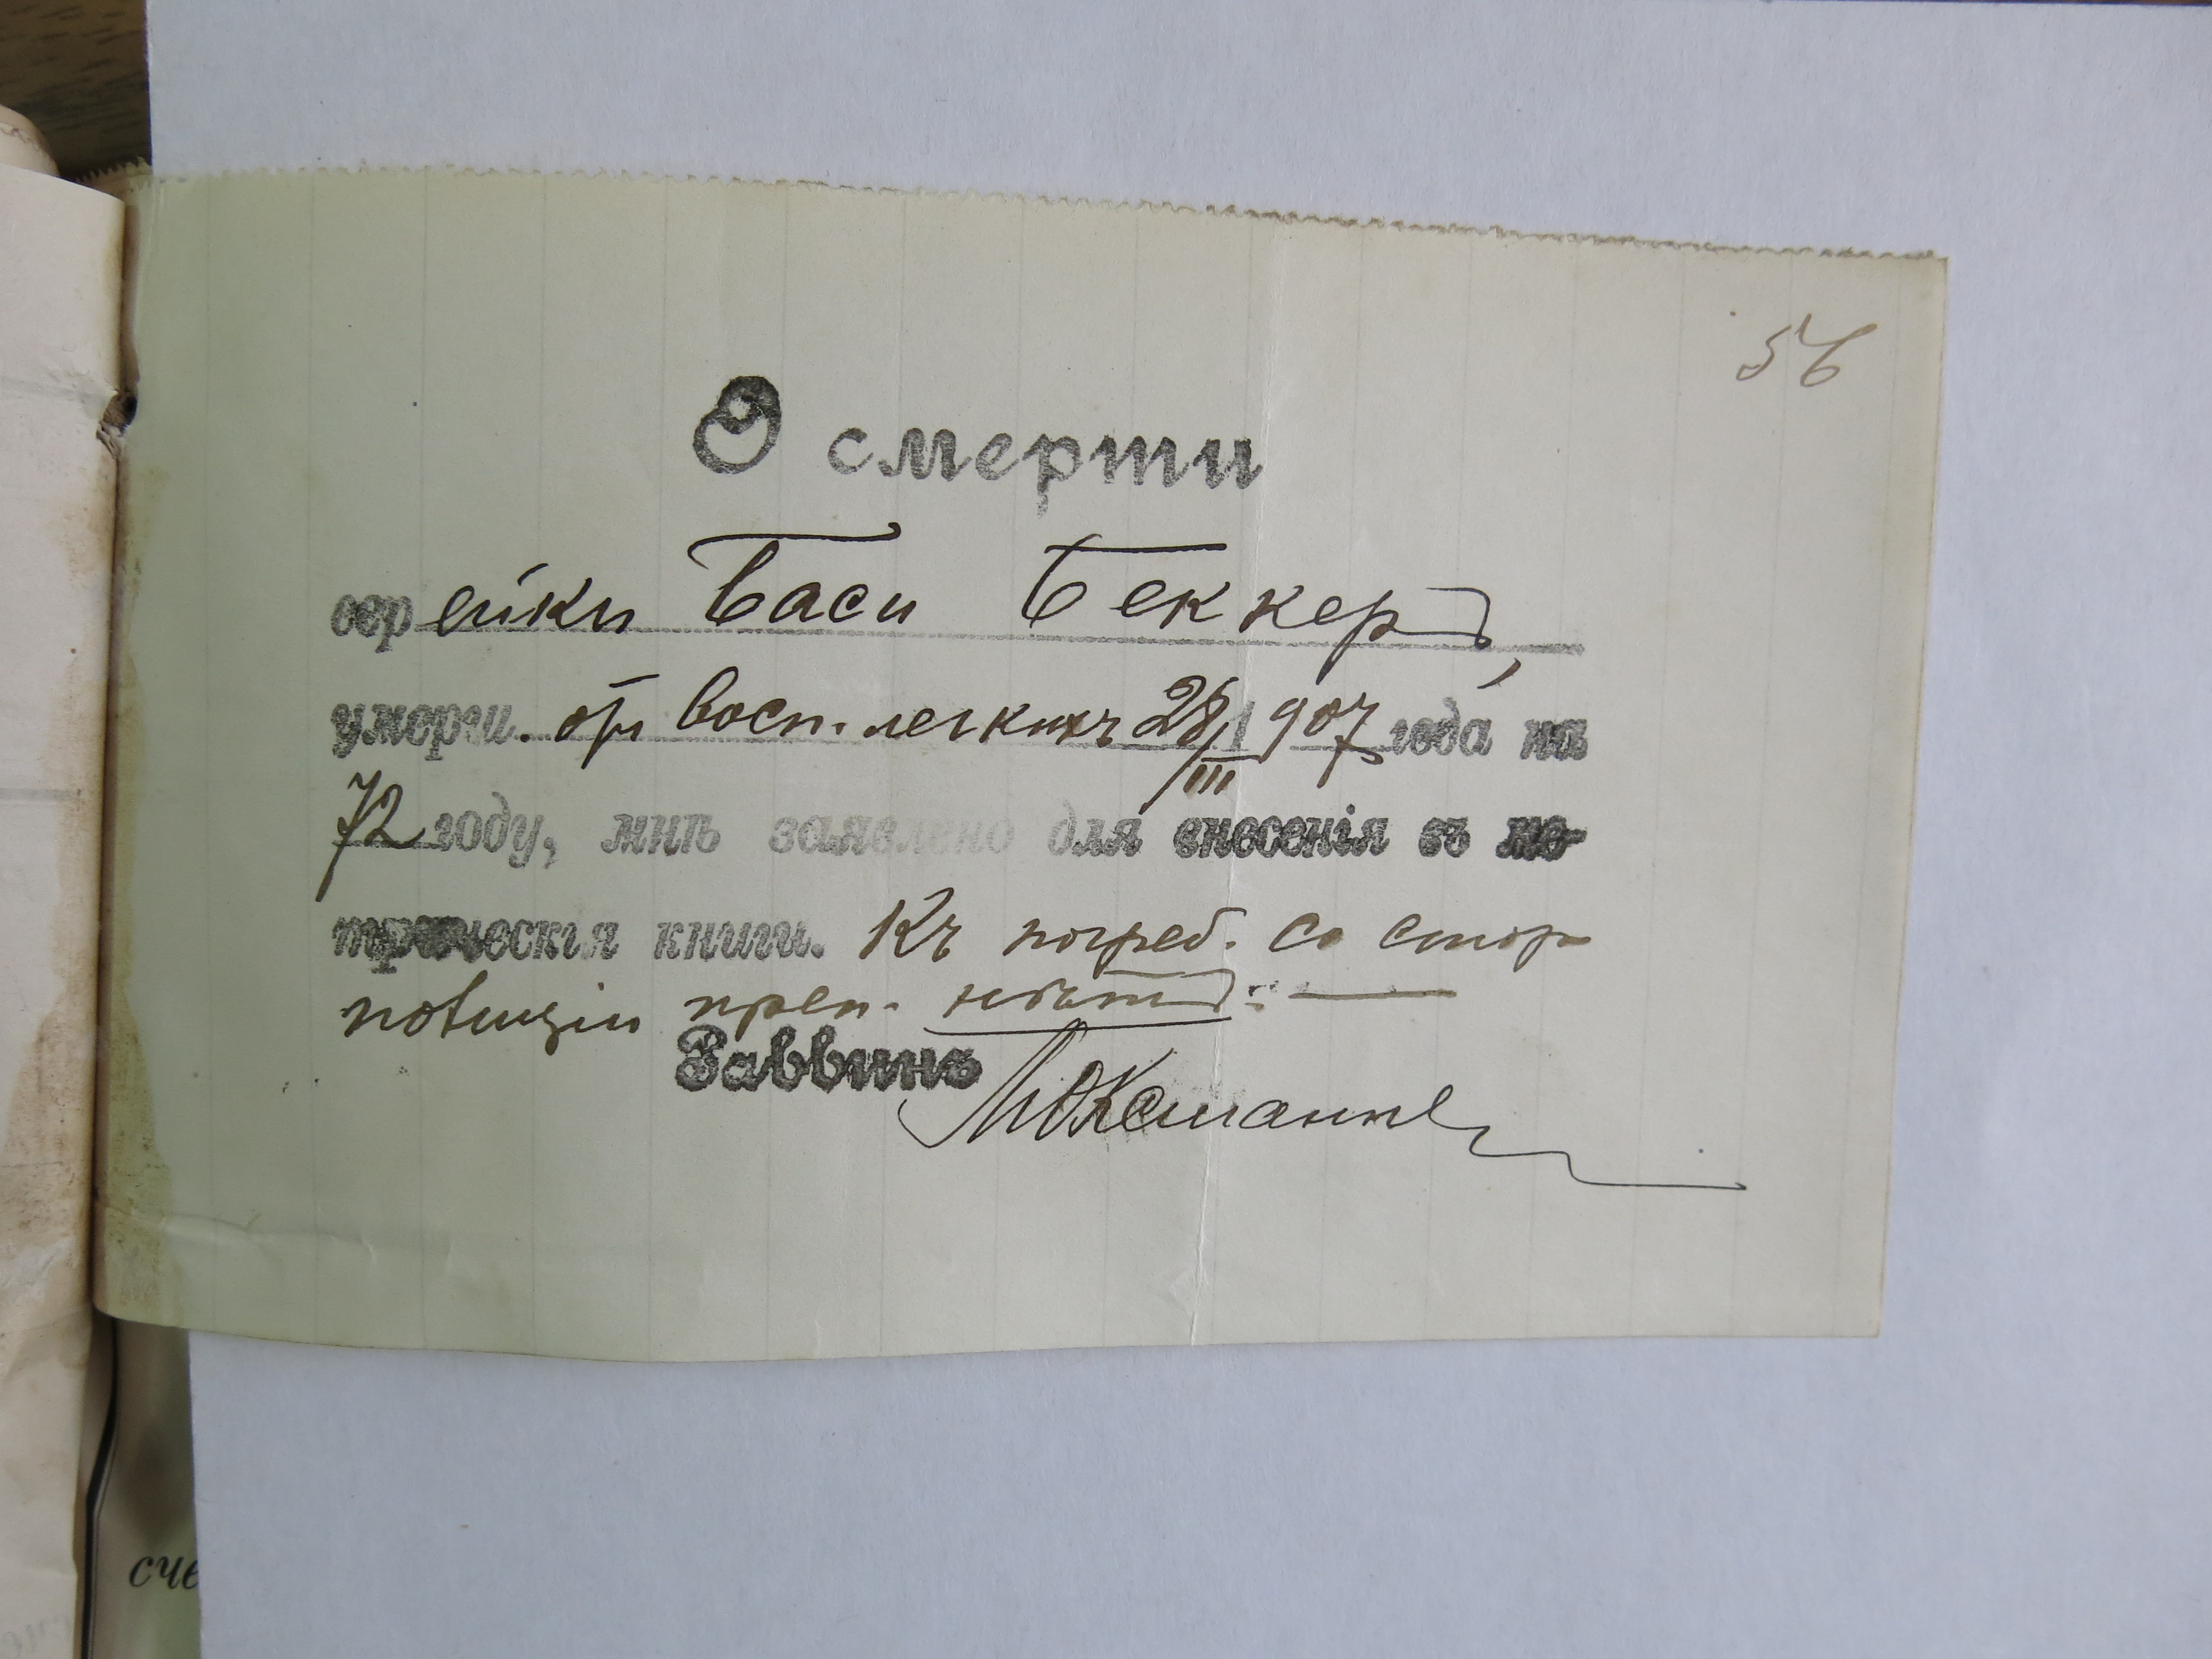 56
О смерти
еврейки Баси Беккеръ,
умерш. отъ восп. легкихъ 28/III 1907 года на
72 году, мнѣ заявлено для внесенія въ ме-
трическія книги. Къ погреб. со стор
полиціи преп. нѣтъ. —
Раввинъ
сче